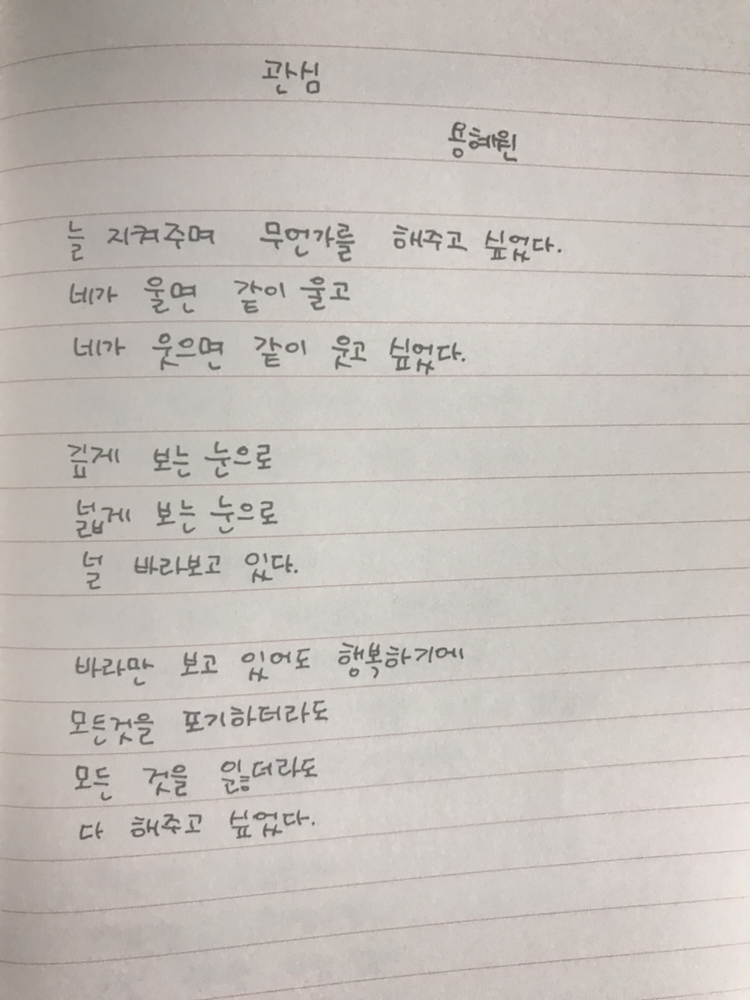 관심
용혜원
늘 지켜주며 무언가를 해주고 싶었다.
네가 울면 같이 울고
네가 웃으면 같이 웃고 싶었다.
깊게 보는 눈으로
넓게 보는 눈으로
널 바라보고 있다.
바라만 보고 있어도 행복하기에
모든것을 포기하더라도
모든 것을 잃더라도
다 해주고 싶었다.